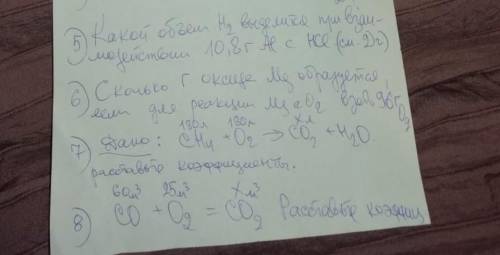 5) Какой объем H2 выделится при взаи-
модействии 10,8 г Al с HCl (см. 2)
6) Сколько г оксида Mg образуется,
если для реакции Mg с O2 взято 96 г O2
7) Дано: CH4 + O2 → CO2 + H2O.
180л 180л хл
расставьте коэффициенты.
60м³ 25м³ Хм³
8) CO + O2 = CO2 Расставьте коэффиц